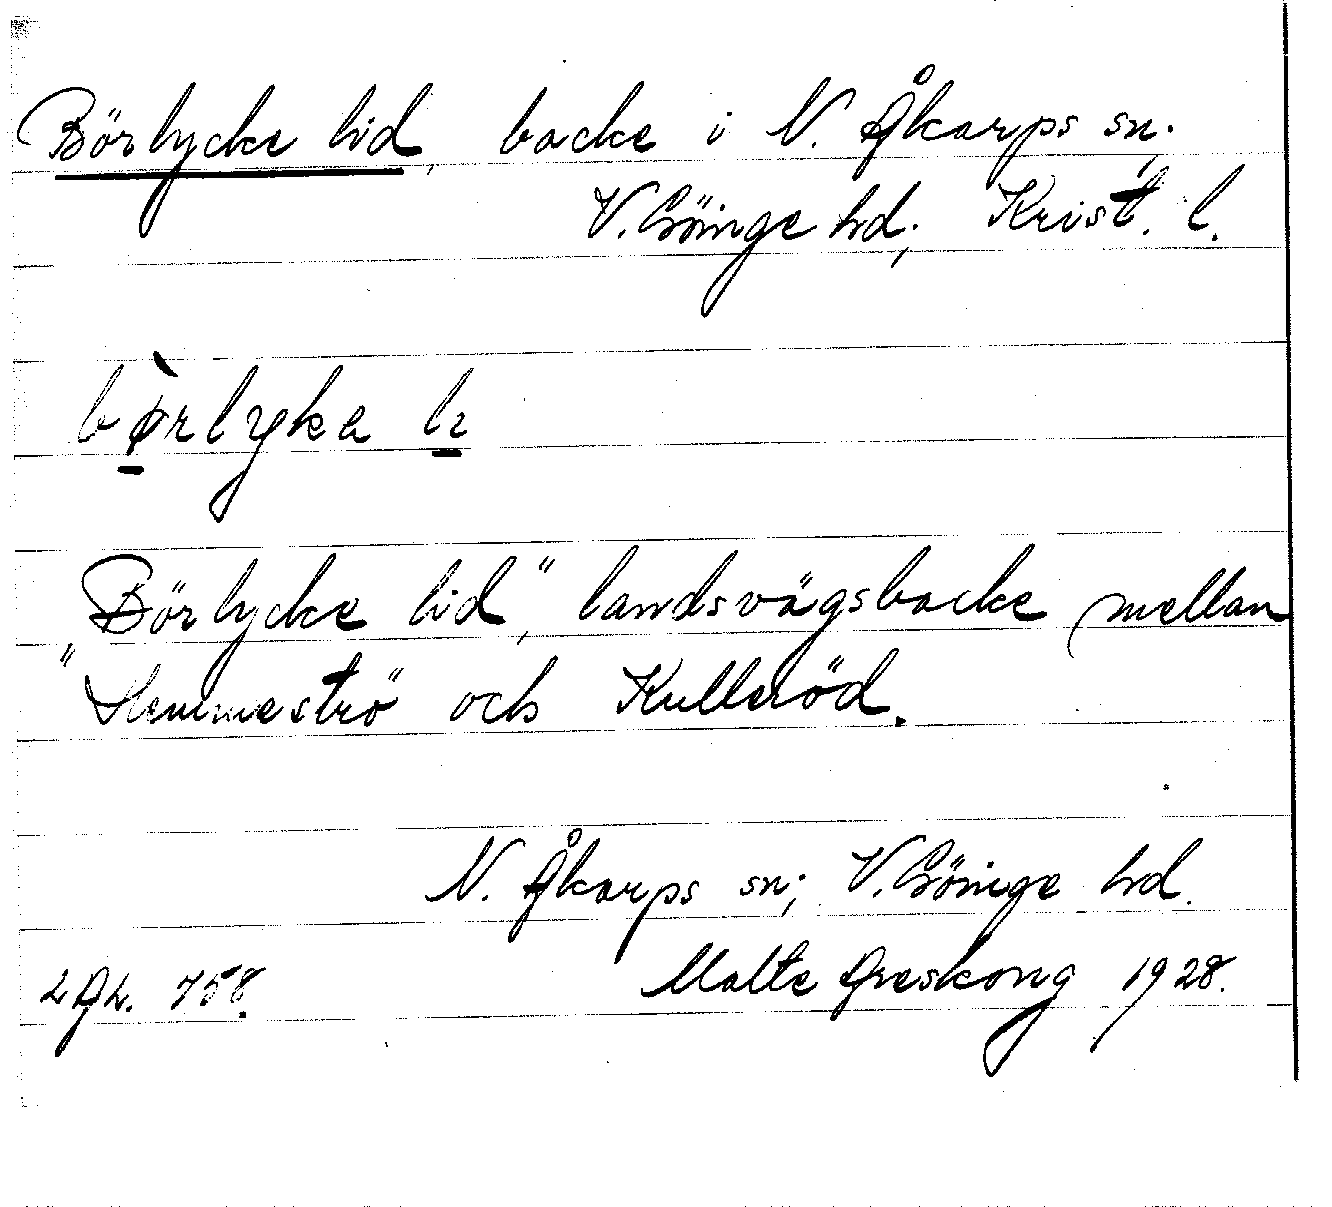 Börlycke lid, backe i N. Åkarps sn.
V. Göinge hd, Krist. l.
bö̀rlyka lı
"Börlycke lid," landsvägsbacke mellan
"Hemmeströ" och Kulleröd.
N. Åkarps sn; V. Göinge hd.
Malte Areskoug 1928.
758.